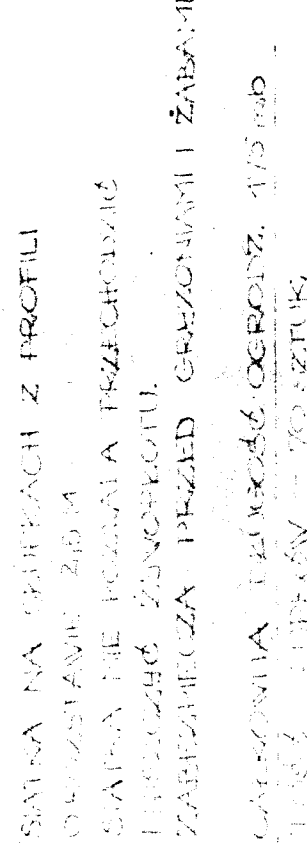 SIATKA NA SŁUPKACH Z PROFILI
O ROZSTAWIE 2,5 M
SIATKA NIE POZWALA PRZECHODZIĆ
ŻYWOPŁOTU.
ZABEZPIECZA PRZED GRYZONIAMI I ŻABAMI
CAŁKOWITA DŁUGOŚĆ OGRODZ. 175 mb
ILOŚĆ SŁUPKÓW - 70 SZTUK,